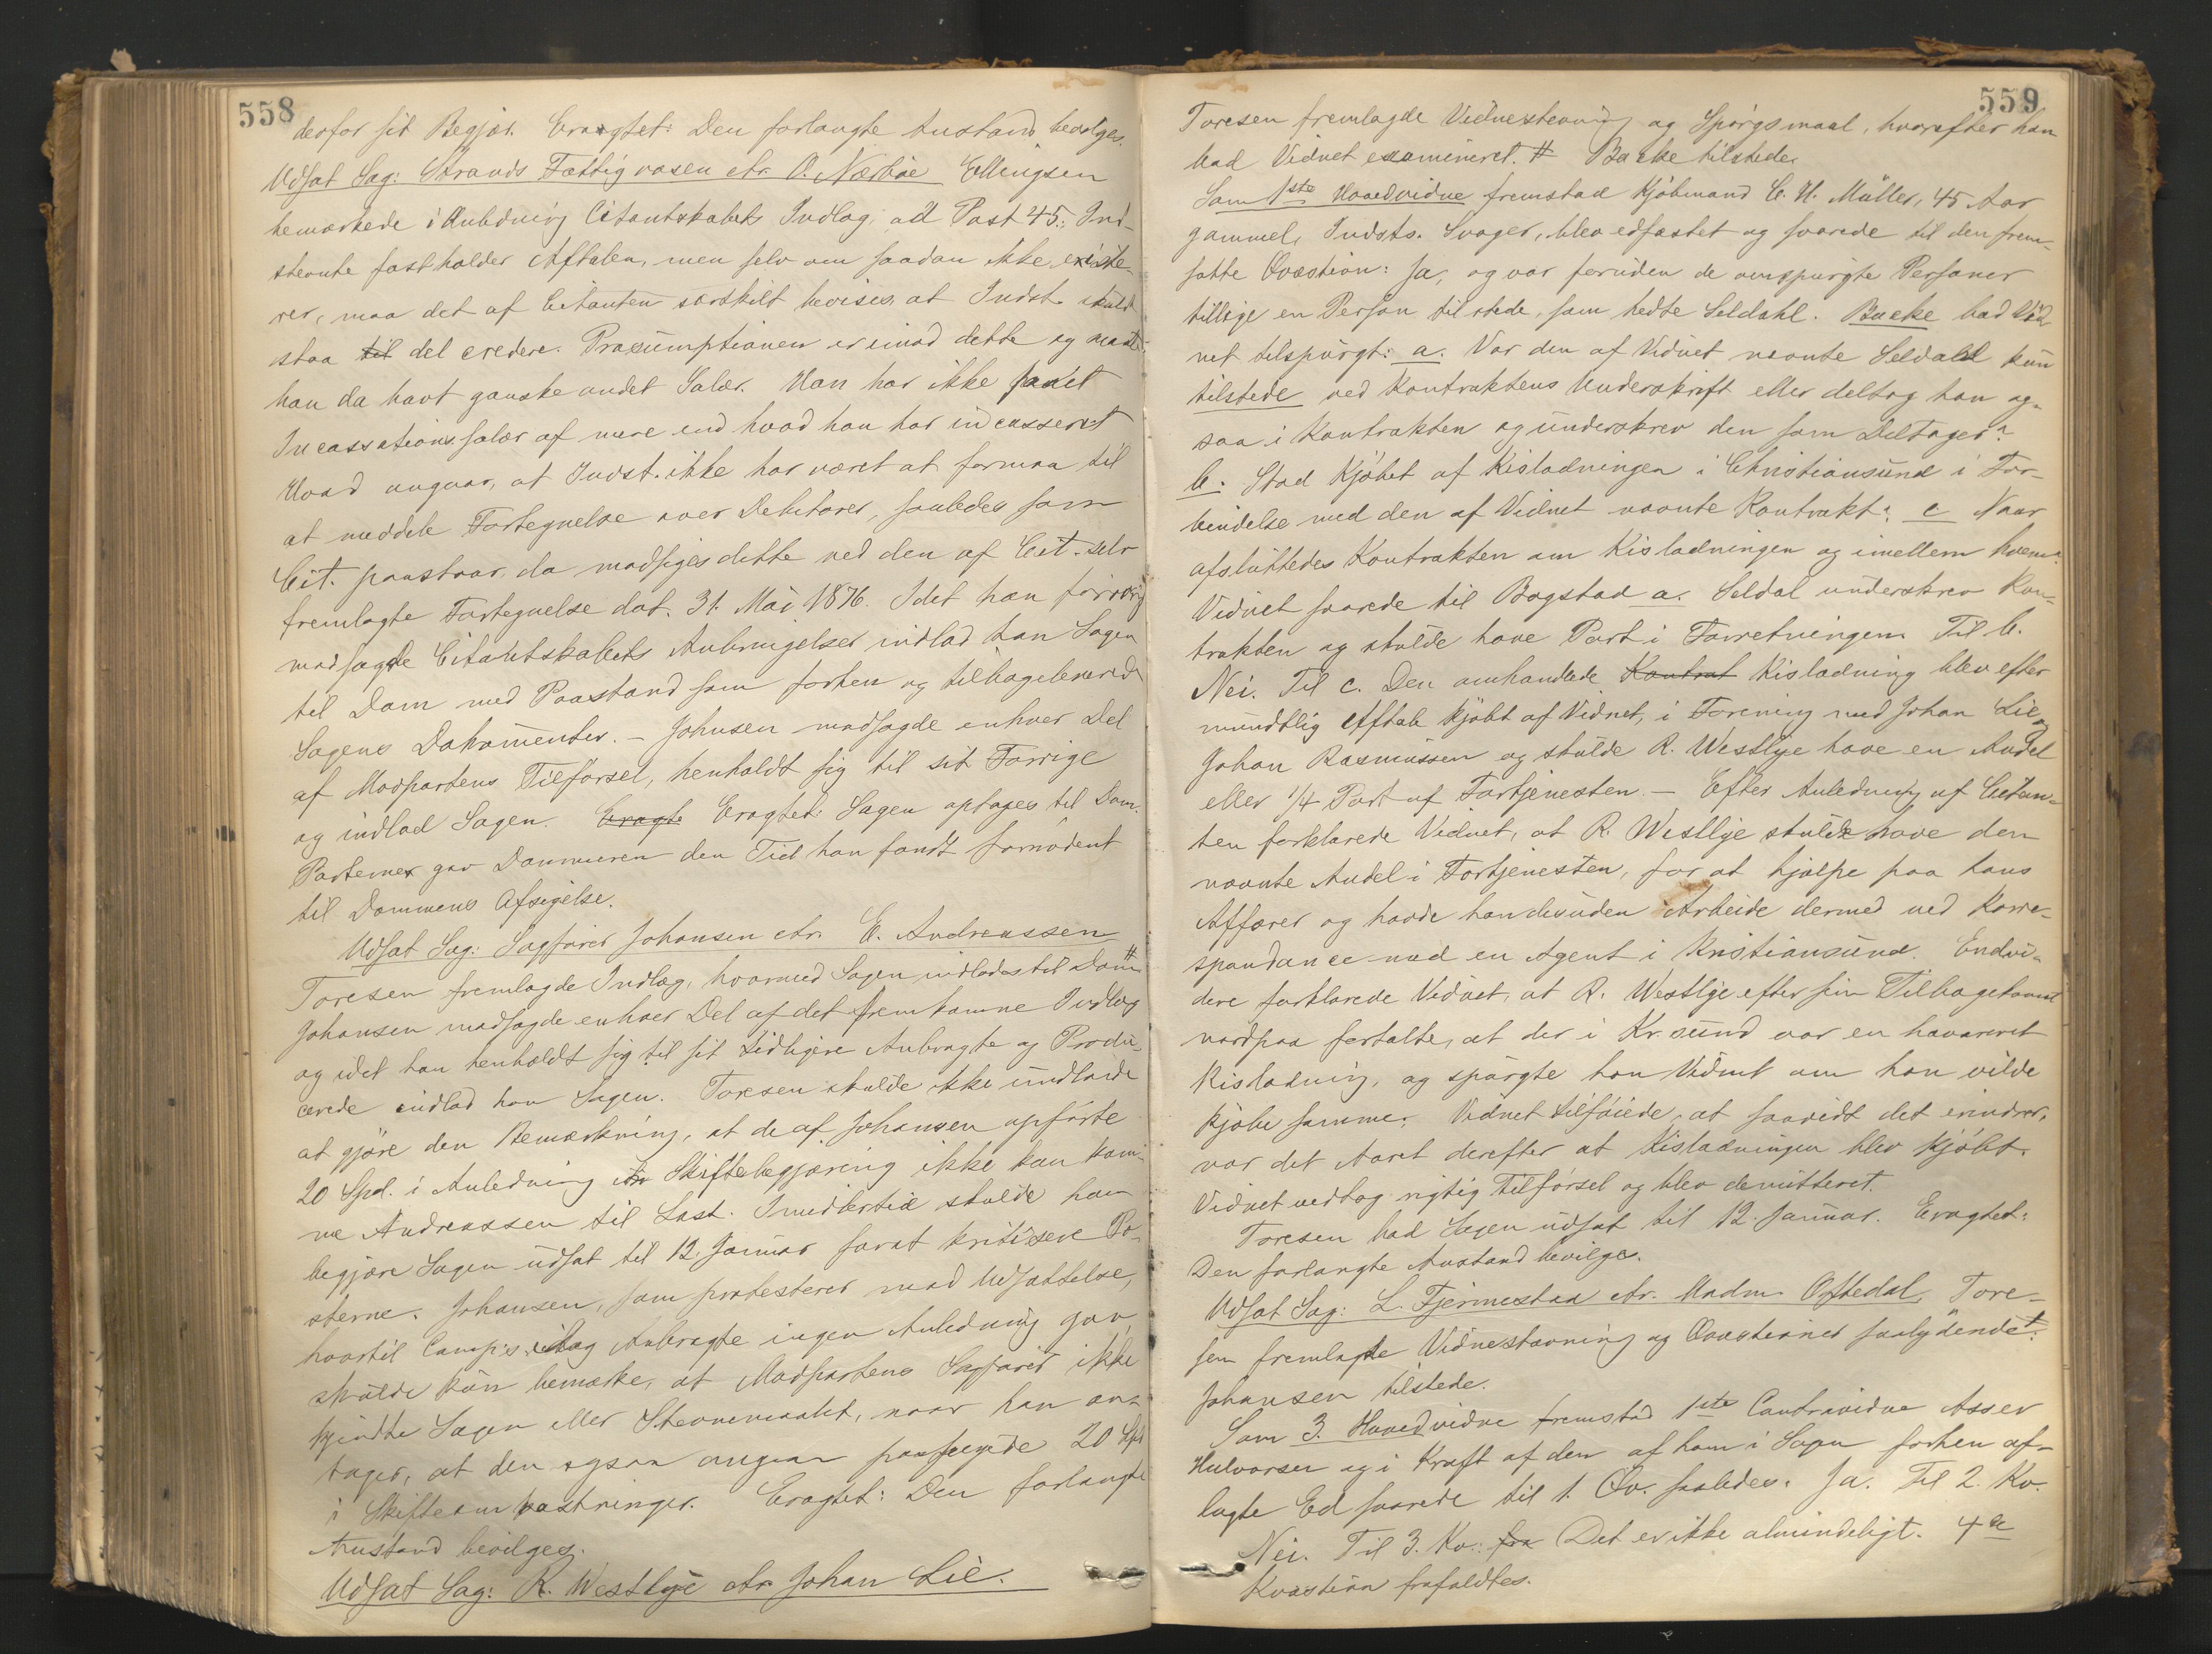 558
derfor sit Begjær. Eragtet: Den forlangte Anstand bevilges.
Udsat Sag: Strands Fattigvæsen ctr. O. Nærbøe Ellingsen
bemærkede i Anledning Citantskabets Indlæg, ad Post 45: Ind-
stevnte fastholder Aftalen, men selv om saadan ikke existe-
rer, maa det af Citanten særskilt bevises, at Indst. skulde
staa til del credere. Præsumptionen er imod dette og maatte
han da havt ganske andet Salær. Han har ikke faaet
Incassationssalær af mere end hvad han har indcasseret
Hvad angaar, at Indst. ikke har været at formaa til
at meddele Fortegnelse over Debitorer, saaledes som
Cit. paastaar, da modsiges dette ved den af Cit. selv
fremlagte Fortegnelse dat. 31. Mai 1876. Idet han forøvrigt
modsagde Citantskabets Anbringelser indlod han Sagen
til Dom med Paastand som forhen og tilbageleverede
Sagens Dokumenter. – Johnsen modsagde enhver Del
af Modpartens Tilførsel, henholdt sig til sit Forrige
og indlod Sagen. Eragte Eragtet: Sagen optages til Dom.
Parterne gav Dommeren den Tid han fandt fornødent
til Dommens Afsigelse.
Udsat Sag: Sagfører Johansen ctr. E. Andreassen
Toresen fremlagde Indlæg, hvormed Sagen indlades til Dom #
Johansen modsagde enhver Del af det fremkomne Indlæg
og idet han henholdt sig til sit tidligere Anbragte og Produ-
cerede indlod han Sagen. Toresen skulde ikke undlade
at gjøre den Bemærkning, at de af Johansen opførte
20 Spd. i Anledning Skiftebegjæring ikke kan kom-
me Andreassen til Last. Imidlertid skulde han
begjære Sagen udsat til 12. Januar forat kritisere Po-
sterne. Johansen, som protesterer mod Udsættelse,
hvortil Camp's idag Anbragte ingen Anledning gav
skulde kun bemærke, at Modpartens Sagfører ikke
kjendte Sagen eller Stevnemaalet, naar han an-
tager, at den ogsaa angaar paagjeldende 20 Spd
i Skifteomkostninger. Eragtet: Den forlangte
Anstand bevilges.
Udsat Sag: R. Westlye ctr Johan Lie.
559
Toresen fremlagde Vidnestevning og Spørgsmaal, hvorefter han
bad Vidnet examineret. # Backe tilstede.
Som 1ste Hovedvidne fremstod Kjøbmand C. H. Müller, 45 Aar
gammel, Indsts. Svoger, blev edfæstet og svarede til den frem-
satte Qvæstion: Ja, og var foruden de omspurgte Personer
tillige en Person til stede, som hedte Seldahl. Backe bad Vid-
net tilspurgt: a. Var den af Vidnet nævnte Seldahl kun
tilstede ved Kontraktens Underskrift eller deltog han og-
saa i Kontrakten og underskrev den som Deltager?
b. Stod Kjøbet af Kisladningen i Christiansund i For-
bindelse med den af Vidnet nævnte Kontrakt? c Naar
afsluttedes Kontrakten om Kisladningen og imellem hvem?
Vidnet svarede til Bogstav a. Seldal underskrev Kon-
trakten og skulde have Part i Forretningen. Til b.
Nei. Til c. Den omhandlede Kontrat Kisladning blev efter
mundtlig Aftale kjøbt af Vidnet, i Forening med Johan Lie og
Johan Rasmussen og skulde R. Westlye have en Andel
eller 1/4 Part af Fortjenesten. – Efter Anledning af Citan-
ten forklarede Vidnet, at R. Westlye skulde have den
nævnte Andel i Fortjenesten, for at hjælpe paa hans
Affærer og havde han desuden Arbeide dermed ved Korre-
spondance med en Agent i Kristiansund. Endvi-
dere forklarede Vidnet, at R. Westlye efter sin Tilbagekomst
nordpaa fortalte, at der i Kr.sund var en havareret
Kisladning, og spurgte han Vidnet om han vilde
kjøbe samme. Vidnet tilføiede, at saavidt det erindrer,
var det Aaret derefter at Kisladningen blev kjøbt.
Vidnet vedtog rigtig Tilførsel og blev demitteret.
Toresen bad Sagen udsat til 12. Januar. Eragtet:
Den forlangte Anstand bevilges.
Udsat Sag: L. Fjermestad ctr. Madm. Oftedal. Tore-
sen fremlagde Vidnestævning og Qvæstioner saalydende #.
Johansen tilstede.
Som 3. Hovedvidne fremstod 1ste Contravidne Asser
Halvorsen og i Kraft af den af ham i Sagen forhen af-
lagte Ed svarede til 1. Qv. saaledes: Ja. Til 2. Kv.
Nei. Til 3. Kv.: Det er ikke almindeligt. 4de
Kvæstion frafaldtes.